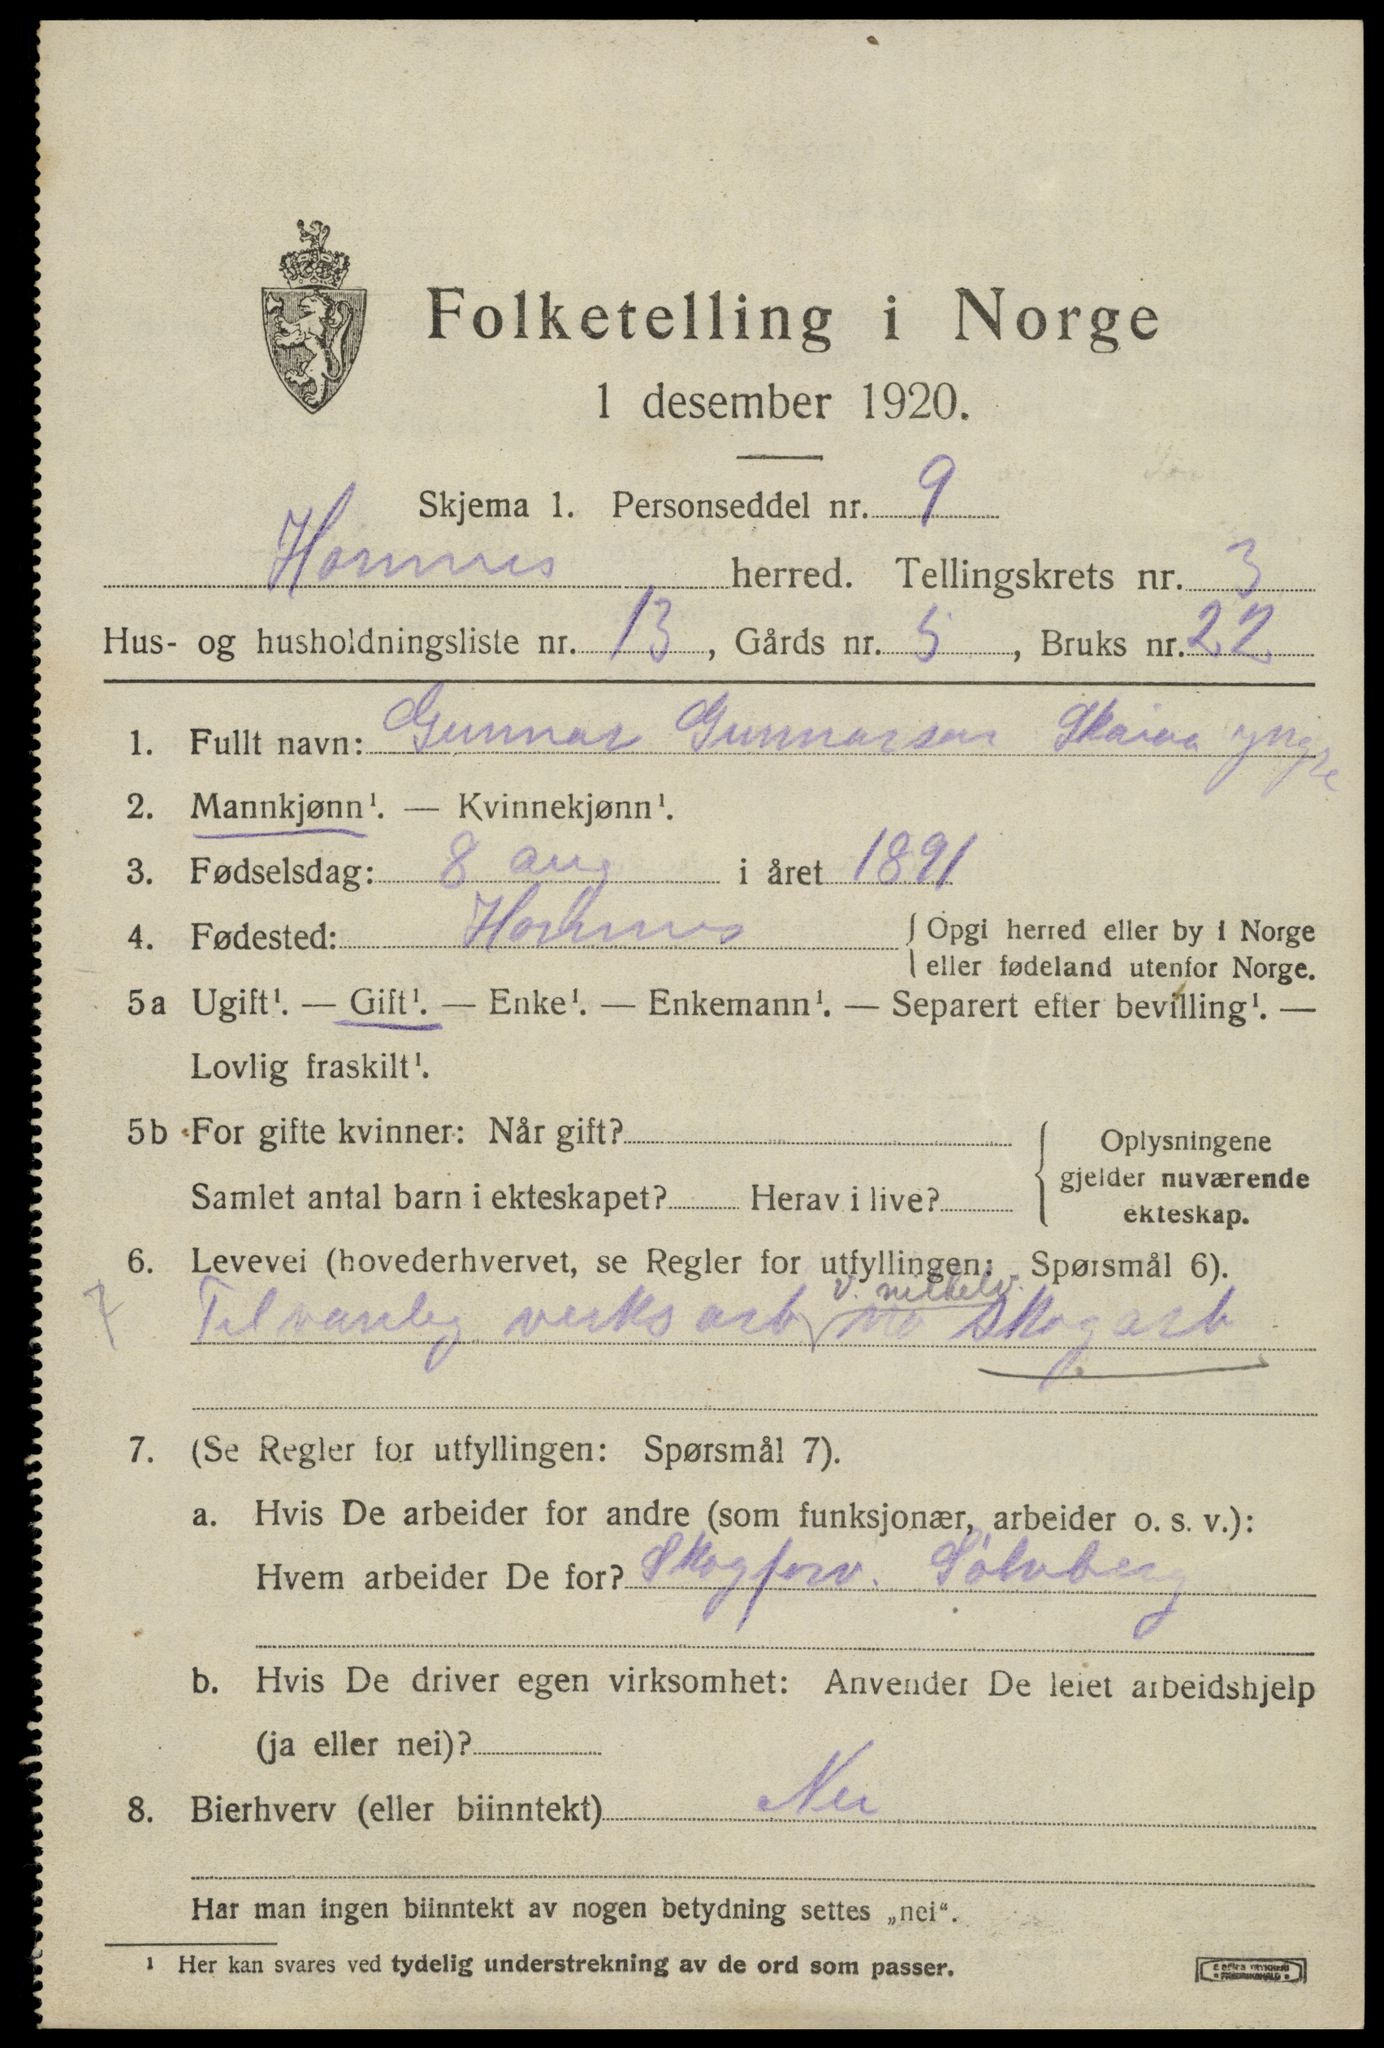 Folketelling i Norge
1 desember 1920.
Skjema 1. Personseddel nr. 9
Hornnes herred. Tellingskrets nr. 3
Hus- og husholdningsliste nr. 13, Gårds nr. 5, Bruks nr. 22
1. Fullt navn: Gunnar Gunnarson Skaiaa yngre
2. Mannkjønn¹. — Kvinnekjønn¹.
3. Fødselsdag: 8 aug i året 1891
4. Fødested: Hornnes { Opgi herred eller by i Norge
eller fødeland utenfor Norge.
5a Ugift¹. — Gift¹. — Enke¹. — Enkemann¹. — Separert efter bevilling¹. —
Lovlig fraskilt¹.
5b For gifte kvinner: Når gift?
Samlet antal barn i ekteskapet? Herav i live?
Oplysningene
gjelder nuværende
ekteskap.
6. Levevei (hovederhvervet, se Regler for utfyllingen: Spørsmål 6).
v. nikkelv.
7 Tilvanleg verksarb, no Skogarb
7. (Se Regler for utfyllingen: Spørsmål 7).
a. Hvis De arbeider for andre (som funksjonær, arbeider o. s. v.):
Hvem arbeider De for? Skogforv. Sølvberg
b. Hvis De driver egen virksomhet: Anvender De leiet arbeidshjelp
(ja eller nei)?
8. Bierhverv (eller biinntekt) Nei
Har man ingen biinntekt av nogen betydning settes „nei“.
¹ Her kan svares ved tydelig understrekning av de ord som passer.